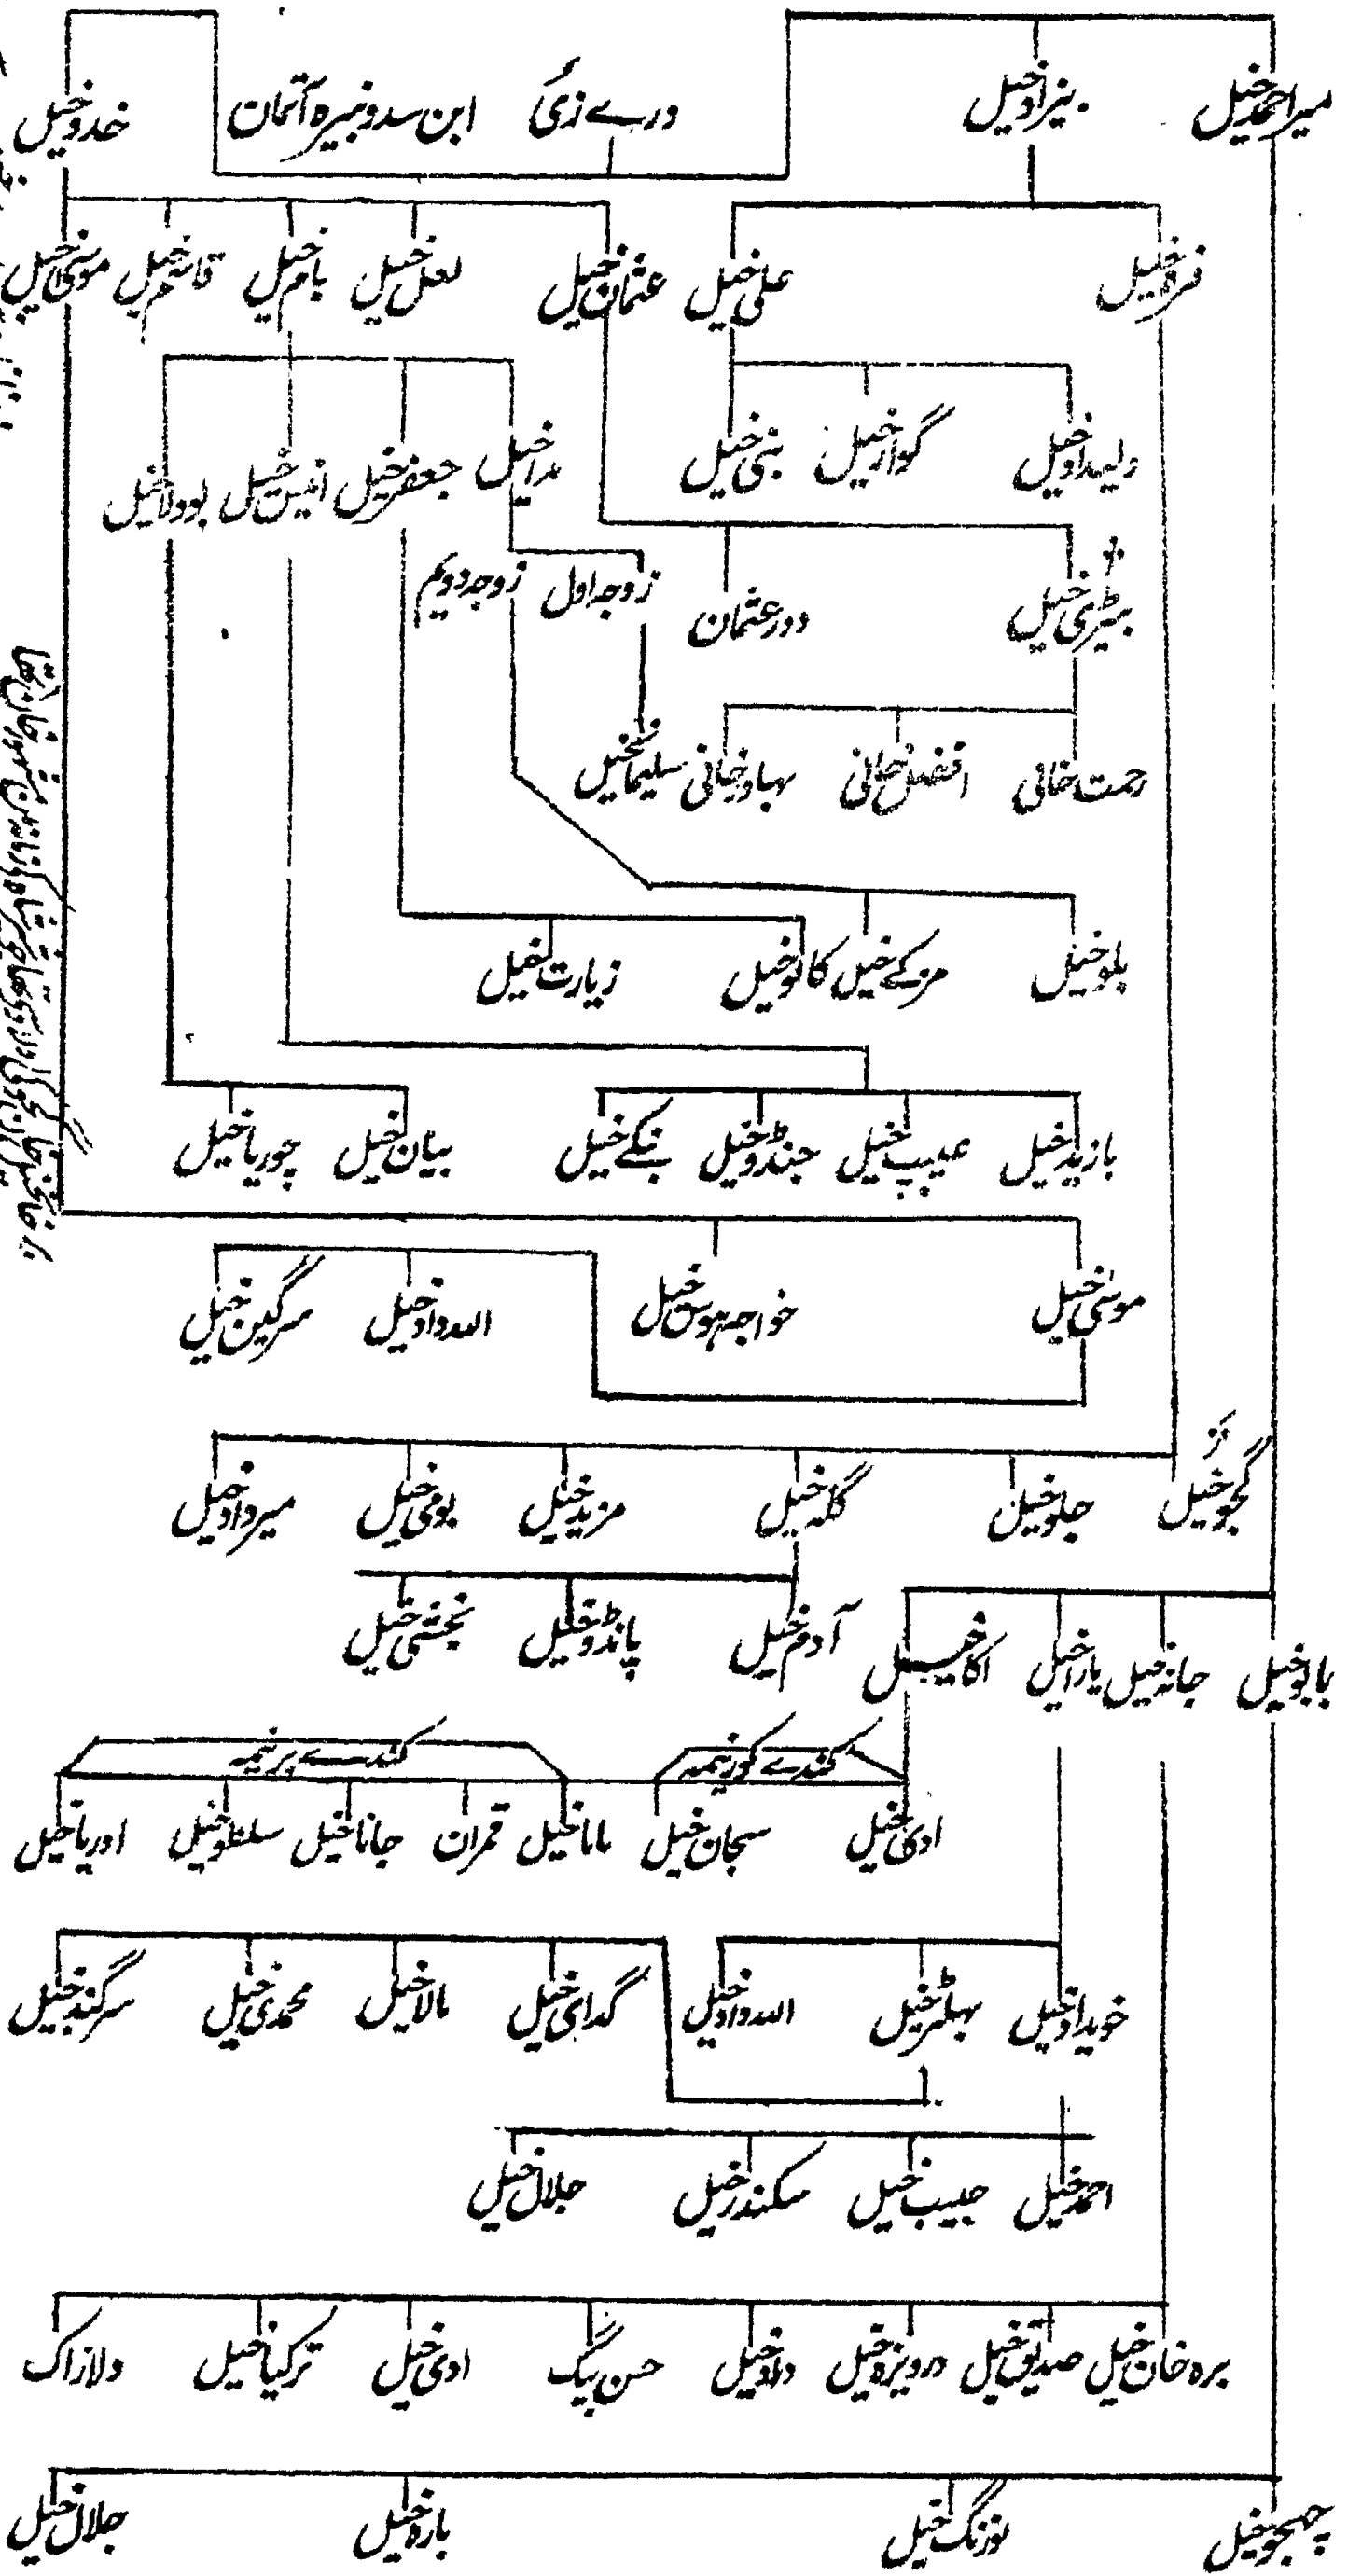 میراحمدخیل بہزادخیل درے زئی ابن سدو نبیرہ آتمان خدوخیل
علی خیل عثمان خیل لعل خیل بام خیل قاسم خیل موسیٰ خیل
ولیدادخیل گوارخیل بنی خیل مداخیل جعفرخیل انیس خیل بوولاخیل
بیڑی خیل دور عثمان زوجہ اول زوجہ دویم
رحمت خانی افضل خانی بہادرخانی سلیماخیل
بلوخیل مزکے خیل کالوخیل زیارت خیل
بازیدخیل عیبب خیل جنڈوخیل بنکے خیل بیان خیل چوریاخیل
موسیٰ خیل خواجہ ہوس خیل اللہ دادخیل سرگین خیل
گجوخیل جلوخیل گلہ خیل مزیدخیل بومی خیل میردادخیل
آدم خیل پانڈوخیل بخشی خیل
بابوخیل جانہ خیل یاراخیل اکاخیل
کندے کوزنیمہ کندے برنیمہ
ادکی خیل سبحان خیل ماناخیل قمران جاناخیل سلطوخیل ادریاخیل
خویدادخیل بہلرخیل اللہ دادخیل گدای خیل مالاخیل محمدی خیل سرگندخیل
احمدخیل حبیب خیل سکندرخیل جلال خیل
برہ خان خیل صدیق خیل درویزہ خیل دادخیل حسن بیگ ادی خیل ترکیاخیل دلازاک
چھجوخیل نورنگ خیل بارہ خیل جلال خیل